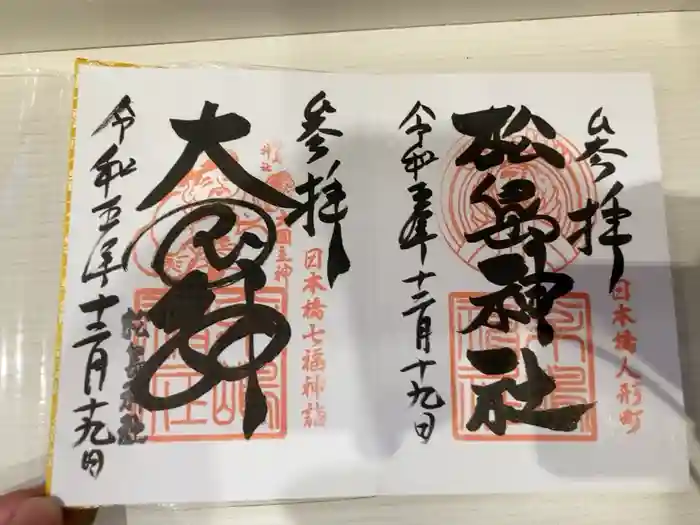 参拝
松島神社
日本橋人形町
令和五年十二月十九日
参拝
大国神
大国主神
日本橋七福神詣
松島神社
令和五年十二月十九日